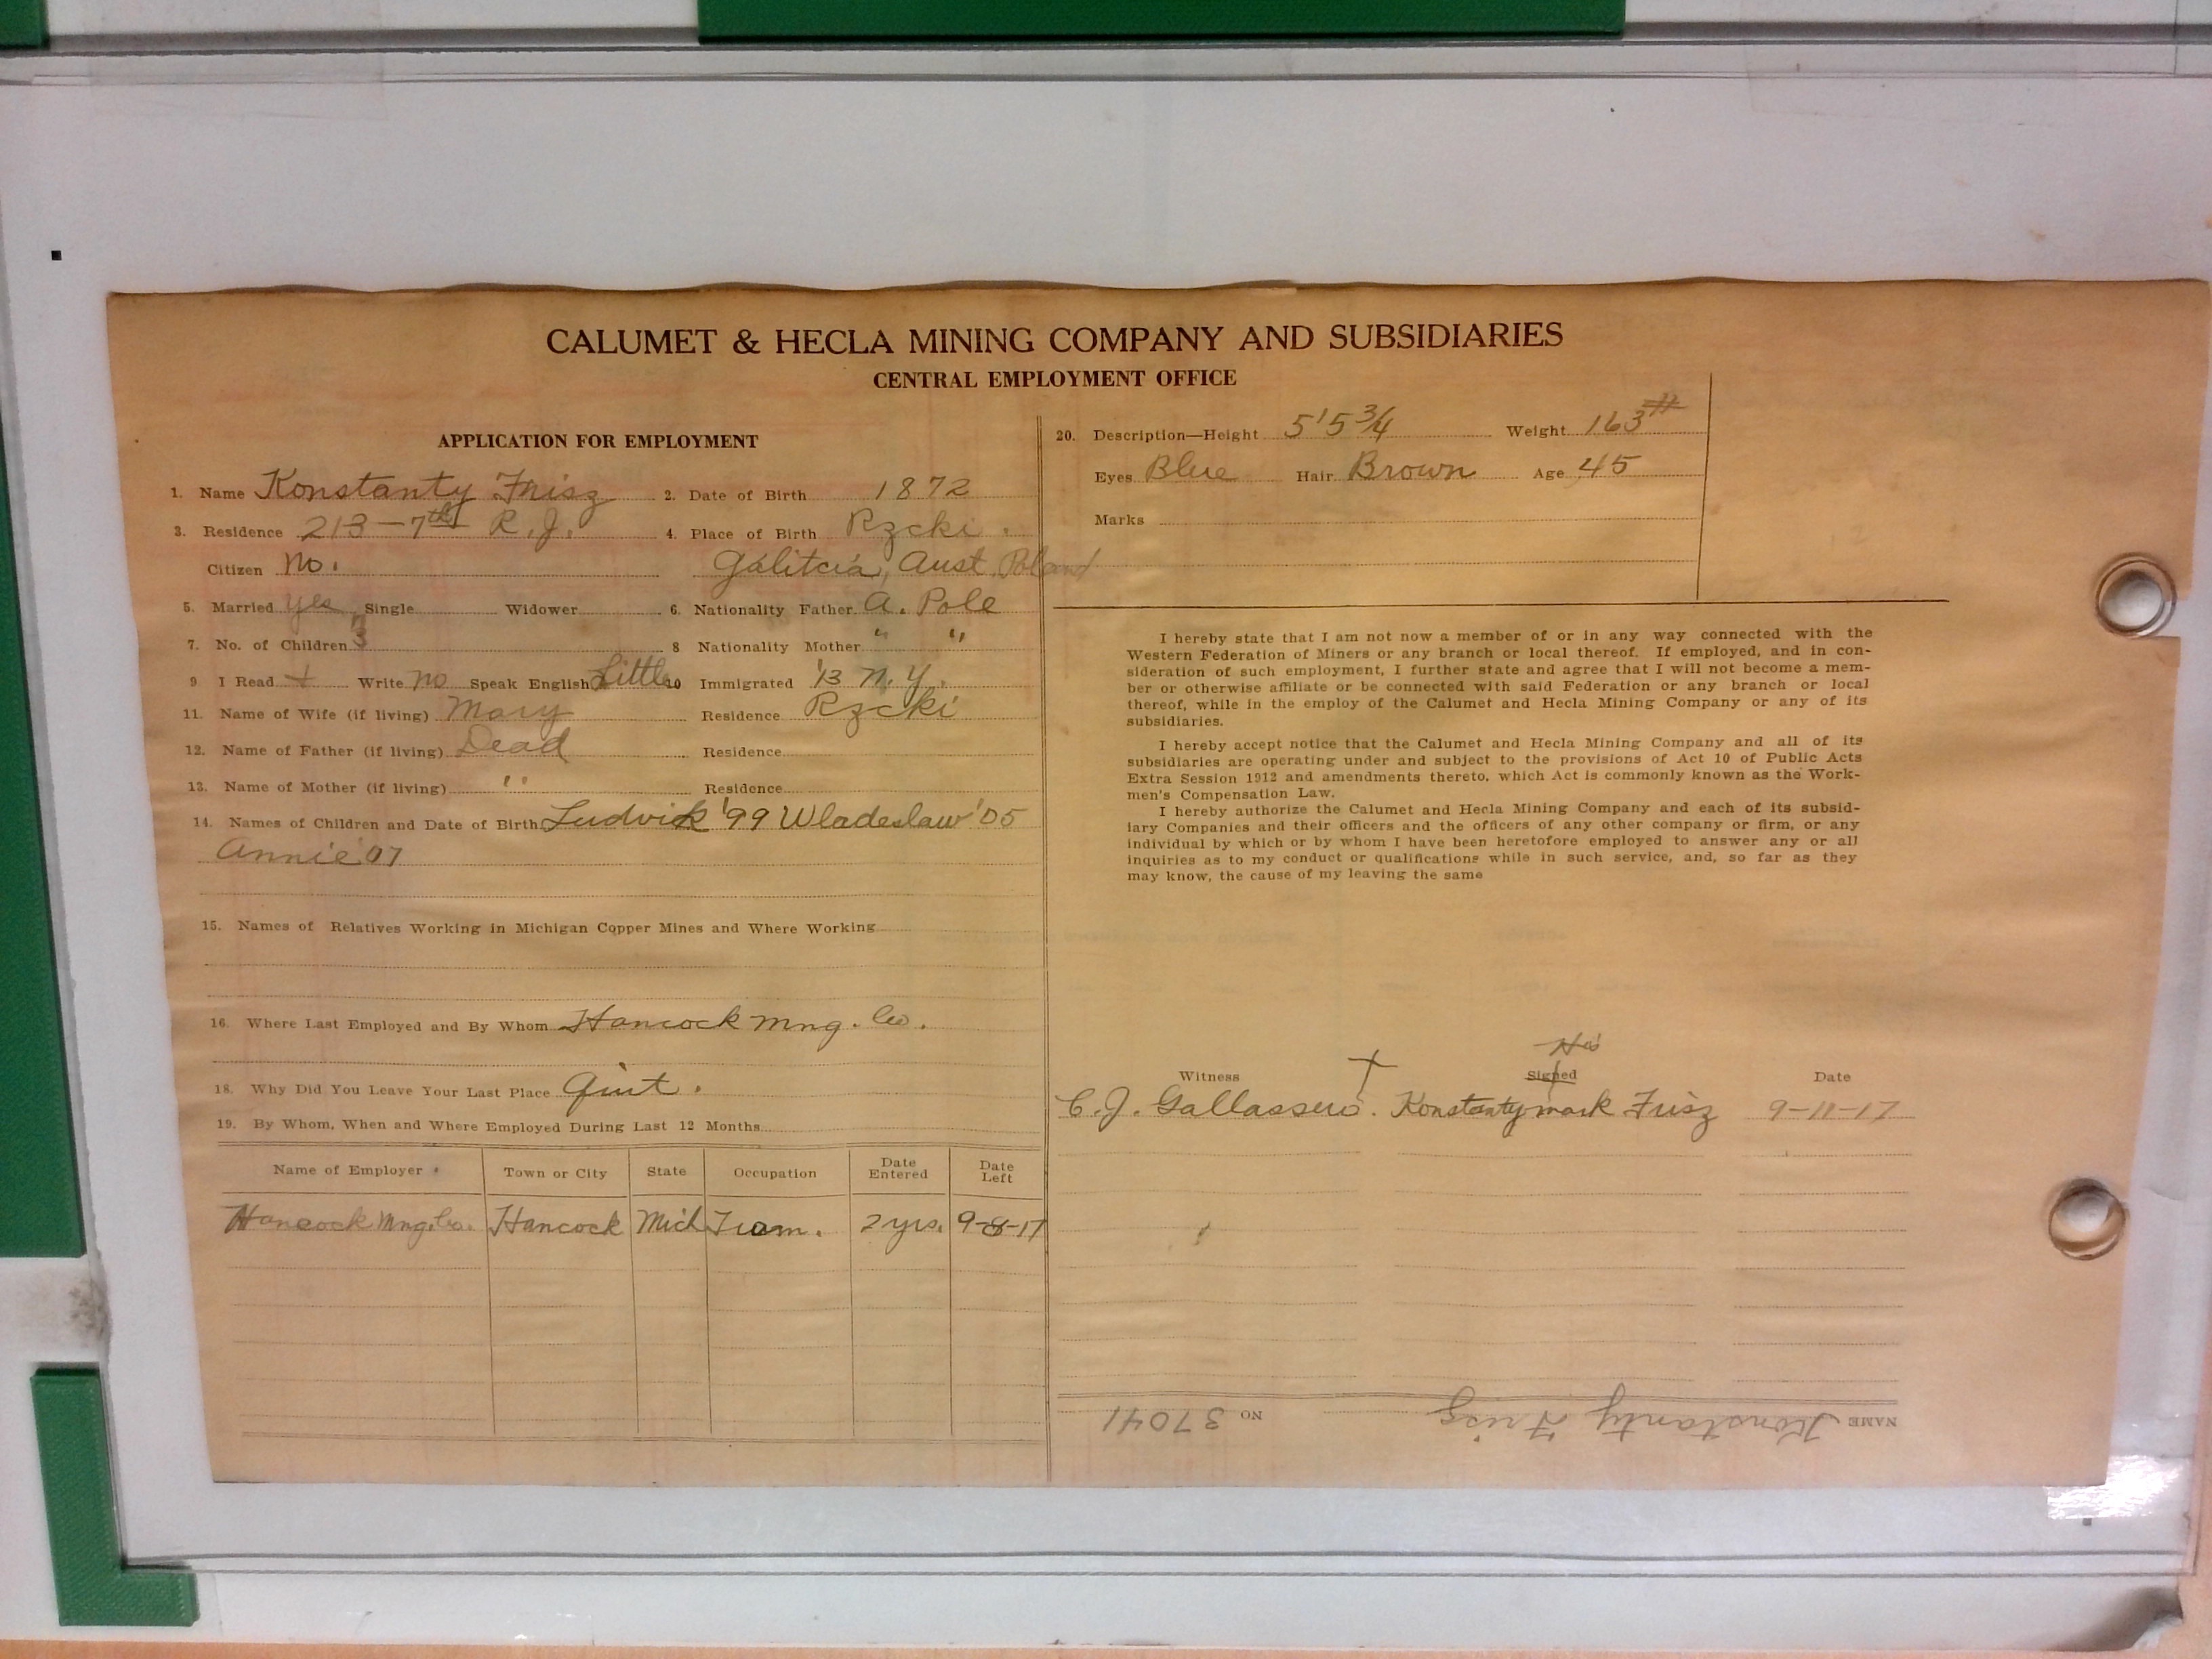 CALUMET & HECLA MINING COMPANY AND SUBSIDIARIES
CENTRAL EMPLOYMENT OFFICE
APPLICATION FOR EMPLOYMENT
1. Name Konstanty Frisz 2. Date of Birth 1872
3. Residence 213-7th R.J. 4. Place of Birth Rzcki.
Citizen No. Galitcia, Aust Poland
5. Married yes Single Widower 6. Nationality Father A. Pole
7. No. of Children 3 8 Nationality Mother " "
9 I Read + Write no Speak English Little 10 Immigrated '13 N.Y.
11. Name of Wife (if living) Mary Residence Rzcki
12. Name of Father (if living) Dead Residence
13. Name of Mother (if living) " Residence
14. Names of Children and Date of Birth Ludvick '99 Wladeslaw '05
Annie '07
15. Names of Relatives Working in Michigan Copper Mines and Where Working
16. Where Last Employed and By Whom Hancock Mng. Co.
18. Why Did You Leave Your Last Place Quit.
19. By Whom, When and Where Employed During Last 12 Months
Name of Employer Town or City State Occupation Date Entered Date Left
Hancock Mng. Co. Hancock Mich Tram. 2 yrs. 9-8-17
20. Description—Height 5'5 3/4 Weight 163#
Eyes Blue Hair Brown Age 45
Marks
I hereby state that I am not now a member of or in any way connected with the
Western Federation of Miners or any branch or local thereof. If employed, and in con-
sideration of such employment, I further state and agree that I will not become a mem-
ber or otherwise affiliate or be connected with said Federation or any branch or local
thereof, while in the employ of the Calumet and Hecla Mining Company or any of its
subsidiaries.
I hereby accept notice that the Calumet and Hecla Mining Company and all of its
subsidiaries are operating under and subject to the provisions of Act 10 of Public Acts
Extra Session 1912 and amendments thereto, which Act is commonly known as the Work-
men's Compensation Law.
I hereby authorize the Calumet and Hecla Mining Company and each of its subsid-
iary Companies and their officers and the officers of any other company or firm, or any
individual by which or by whom I have been heretofore employed to answer any or all
inquiries as to my conduct or qualifications while in such service, and, so far as they
may know, the cause of my leaving the same
His
Witness Signed Date
C.J. Konstanty mark Frisz 9-11-17
NAME Konstanty Frisz NO 37041